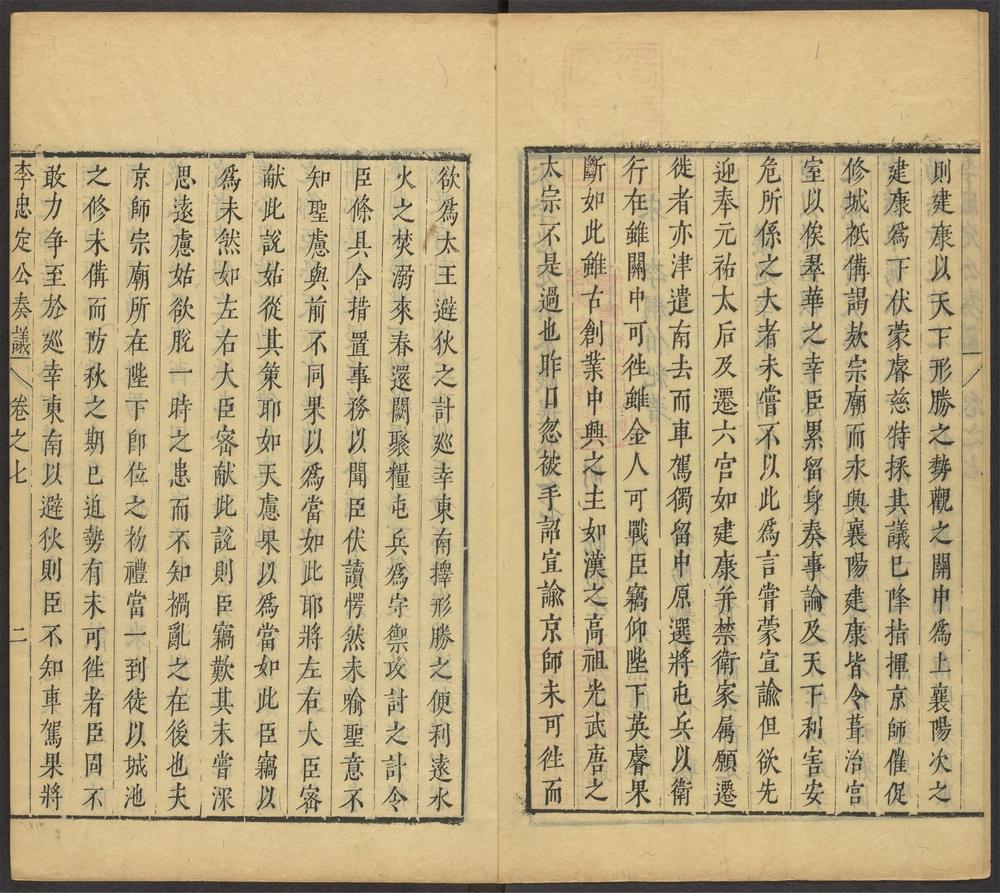 則建康以天下形勝之勢觀之關中爲上襄陽次之
建康爲下伏蒙睿慈特採其議已降指揮京師催促
修城祇備謁欵宗廟而永興襄陽建康皆令葺治宮
室以俟翠華之幸臣累留身奏事論及天下利害安
危所係之大者未嘗不以此爲言嘗蒙宣諭但欲先
迎奉元祐太后及遷六宮如建康并禁衛家属願遷
徙者亦津遣南去而車駕獨留中原選將屯兵以衛
行在雖關中可徃雖金人可戰臣竊仰陛下英睿果
斷如此雖古創業中興之主如漢之高祖光武唐之
太宗不是過也昨日忽被手詔宣諭京師未可徃而
欲爲太王避狄之計廵幸東南擇形勝之便利遠水
火之焚溺來春還闕聚糧屯兵爲守禦攻討之計令
臣條具合措置事務以聞臣伏讀愕然未喻聖意不
知聖慮與前不同果以爲當如此耶將左右大臣密
献此說姑從其策耶如天慮果以爲當如此臣竊以
爲未然如左右大臣密献此說則臣竊歎其未嘗深
思遠慮姑欲脫一時之患而不知禍亂之在後也夫
京師宗廟所在陛下卽位之初禮當一到徒以城池
之修未備而防秋之期已迫勢有未可徃者臣固不
敢力争至於廵幸東南以避狄則臣不知車駕果將
李忠定公奏議 卷之七 二